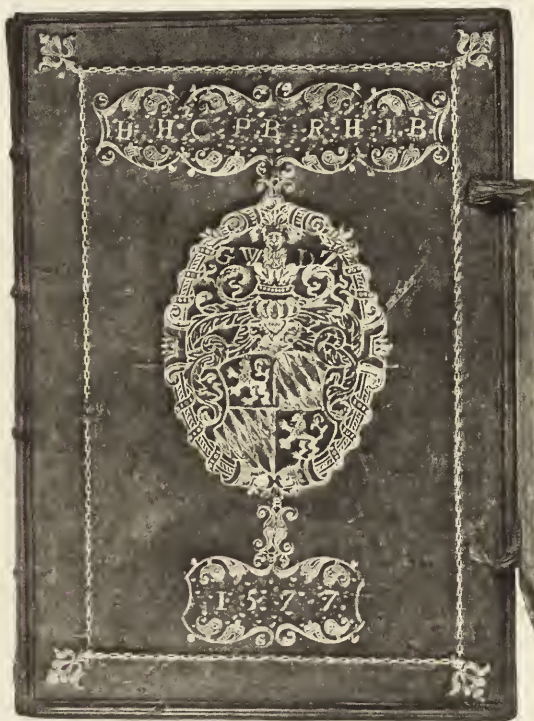 H·H·C·P·B·R·H·I·B
G W D Z
1·5·7·7